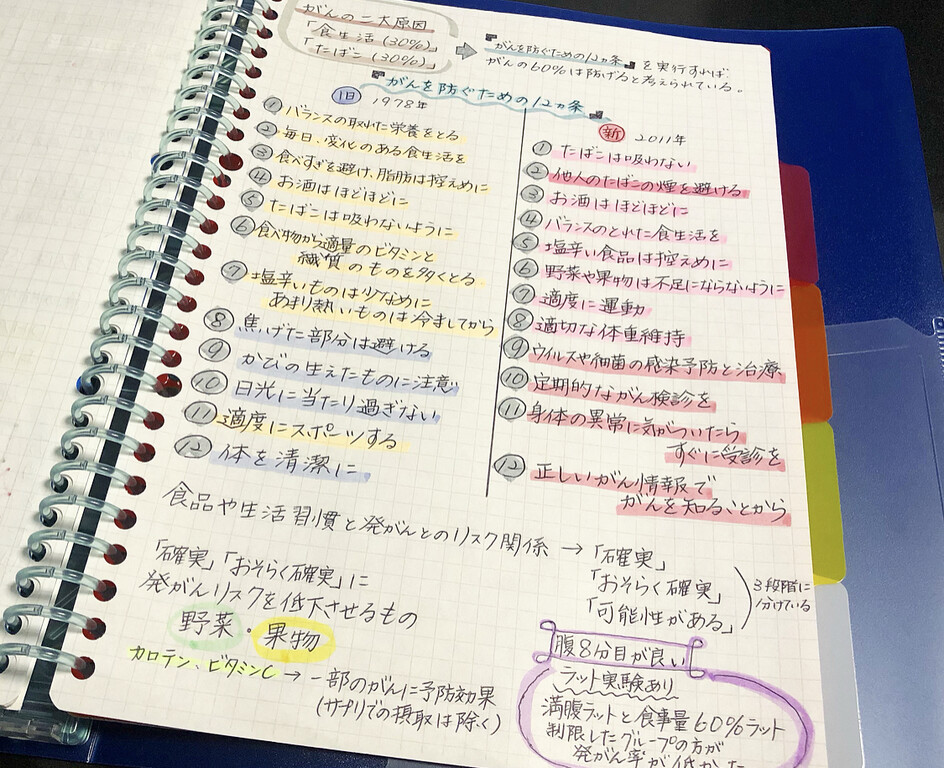 がんの二大原因
「食生活(30%)」
「たばこ(30%)」
『がんを防ぐための12ヵ条』を実行すれば、
がんの60%は防げると考えられている。
『がんを防ぐための12ヵ条』
旧 1978年
① バランスの取れた栄養をとる
② 毎日、変化のある食生活を
③ 食べすぎを避け、脂肪は控えめに
④ お酒はほどほどに
⑤ たばこは吸わないように
⑥ 食べ物から適量のビタミンと
繊質のものを多くとる
⑦ 塩辛いものは少なめに
あまり熱いものは冷ましてから
⑧ 焦げた部分は避ける
⑨ かびの生えたものに注意
⑩ 日光に当たり過ぎない
⑪ 適度にスポーツする
⑫ 体を清潔に
新 2011年
① たばこは吸わない
② 他人のたばこの煙を避ける
③ お酒はほどほどに
④ バランスのとれた食生活を
⑤ 塩辛い食品は控えめに
⑥ 野菜や果物は不足にならないように
⑦ 適度に運動
⑧ 適切な体重維持
⑨ ウイルスや細菌の感染予防と治療
⑩ 定期的ながん検診を
⑪ 身体の異常に気がついたら
すぐに受診を
⑫ 正しいがん情報で
がんを知ることから
食品や生活習慣と発がんとのリスク関係 → 「確実」
「おそらく確実」
「可能性がある」
3段階に
分けている
「確実」「おそらく確実」に
発がんリスクを低下させるもの
野菜・果物
カロテン、ビタミンC → 一部のがんに予防効果
(サプリでの摂取は除く)
腹8分目が良い
ラット実験あり
満腹ラットと食事量60%ラット
制限したグループの方が
発がん率が低かった